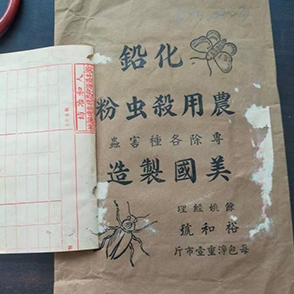 化鉛
農用殺虫粉
專除各種害蟲
美國製造
餘姚經理
裕和號
每包淨重壹市斤